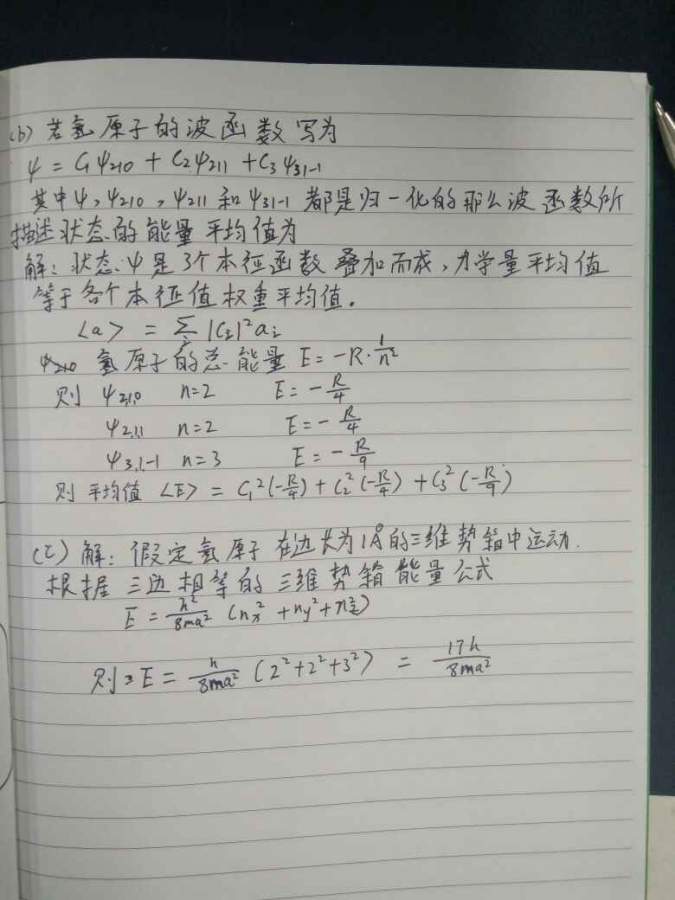 (b) 若氢原子的波函数写为
ψ = C₁ψ₂₁₀ + C₂ψ₂₁₁ + C₃ψ₃₁₋₁
其中ψ,ψ₂₁₀,ψ₂₁₁和ψ₃₁₋₁都是归一化的那么波函数所
描述状态的能量平均值为
解:状态ψ是3个本征函数叠加而成,力学量平均值
等于各个本征值权重平均值.
<a> = Σᵢ|Cᵢ|²aᵢ
ψ₂₁₀ 氢原子的总能量 E=-R·1/n²
则 ψ₂,₁,₀ n=2 E=-R/4
ψ₂,₁,₁ n=2 E=-R/4
ψ₃,₁,₋₁ n=3 E=-R/9
则 平均值 <E> = C₁²(-R/4) + C₂²(-R/4) + C₃²(-R/9)
(C) 解:假定氢原子在边长为1Å的三维势箱中运动.
根据三边相等的三维势箱能量公式
E = h²/8ma² (nx² + ny² + nz²)
则:E = h/8ma² (2²+2²+3²) = 17h/8ma²